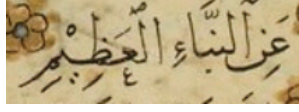 عَنِ النَّبَاءِ الْعَظِيْمِ